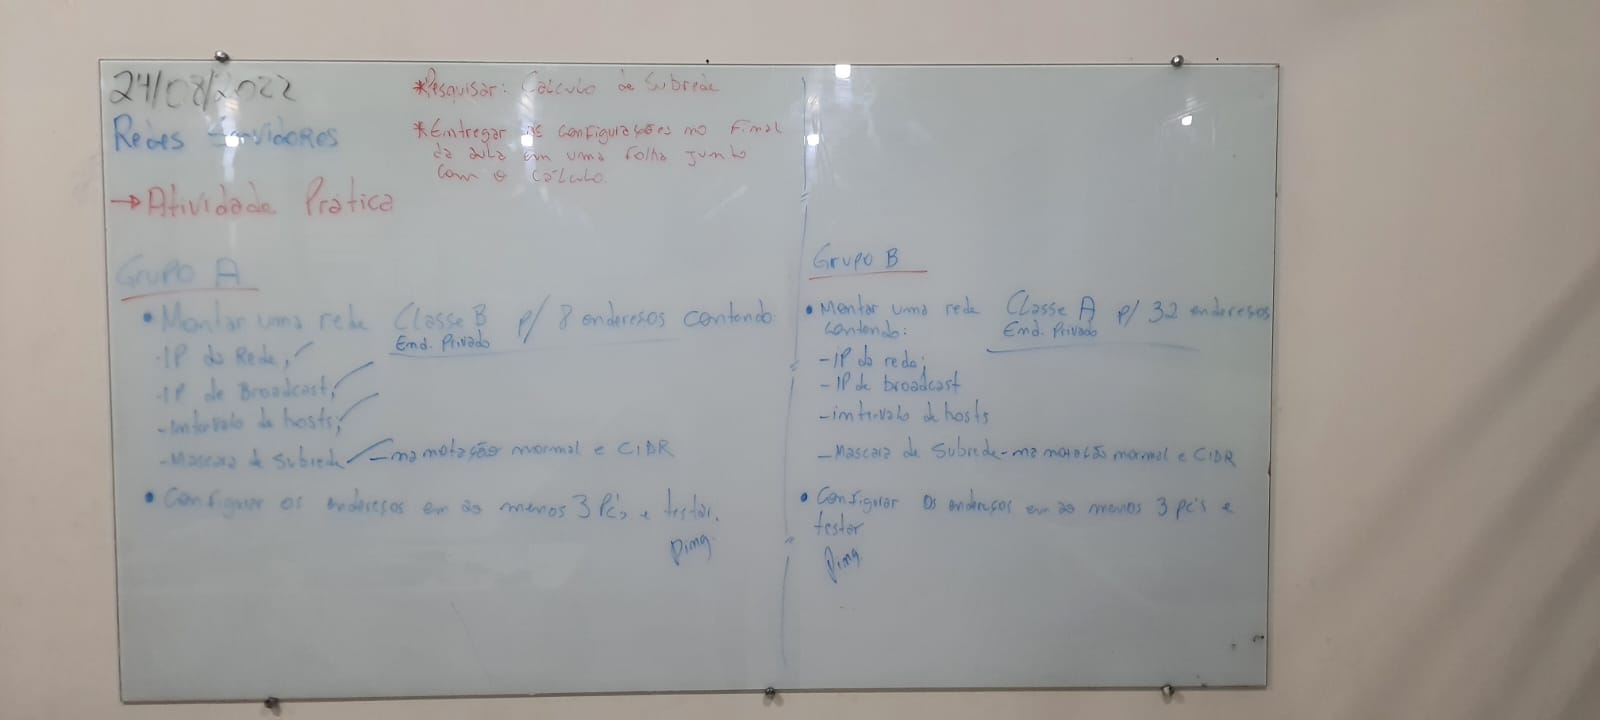 24/08/2022
Redes Servidores
→ Atividade Pratica
*Pesquisar: Calculo de Subrede
*Entregar as configurações no final
da aula em uma folha junto
com o cálculo.
Grupo A
• Montar uma rede Classe B p/ 8 enderesos contendo:
End. Privado
-IP da Rede;
-IP de Broadcast;
-intervalo de hosts;
-Mascara de Subrede -na notação normal e CIDR
• Configurar os enderesos em ao menos 3 Pc's e testar.
ping
Grupo B
• Montar uma rede Classe A p/ 32 enderesos
contendo: End. Privado
-IP da rede;
-IP de broadcast
-intervalo de hosts
-Mascara de Subrede-na notação normal e CIDR
• Configurar os enderesos em ao menos 3 pc's e
testar
ping